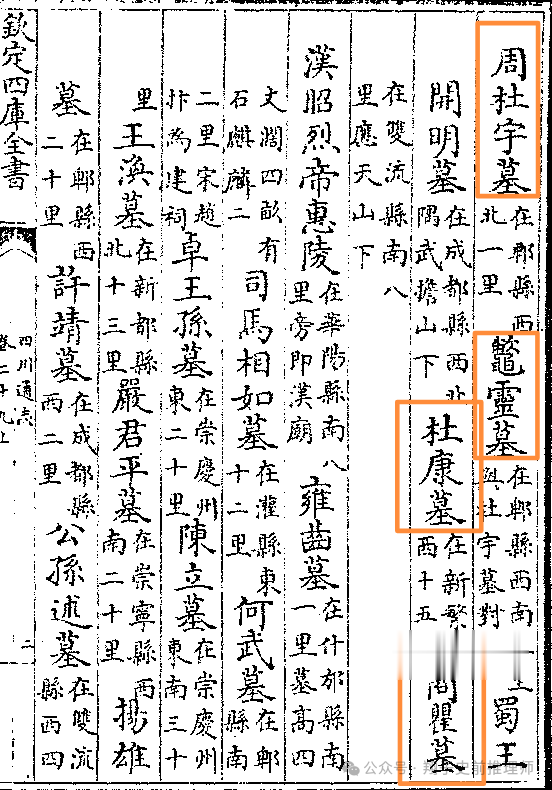 周杜宇墓在郫縣西北一里鼈靈墓在郫縣西南與杜宇墓對上蜀王
開明墓在成都縣西北隅武擔山下杜康墓在新繁西十五商瞿墓
在雙流縣南八里應天山下
漢昭烈帝惠陵在華陽縣南八里旁即漢廟雍齒墓在什邡縣南一里墓高四
丈濶四畝有石麒麟二司馬相如墓在灌縣東十二里何武墓在郫縣南
二里宋趙抃為建祠卓王孫墓在崇慶州東二十里陳立墓在崇慶州東南三十
里王渙墓在新都縣北十三里嚴君平墓在崇寧縣西南二十里揚雄
墓在郫縣西二十里許靖墓在成都縣西二里公孫述墓在雙流縣西四
欽定四庫全書
四川通志
卷二十九上
二
公众号 · 史前推理师